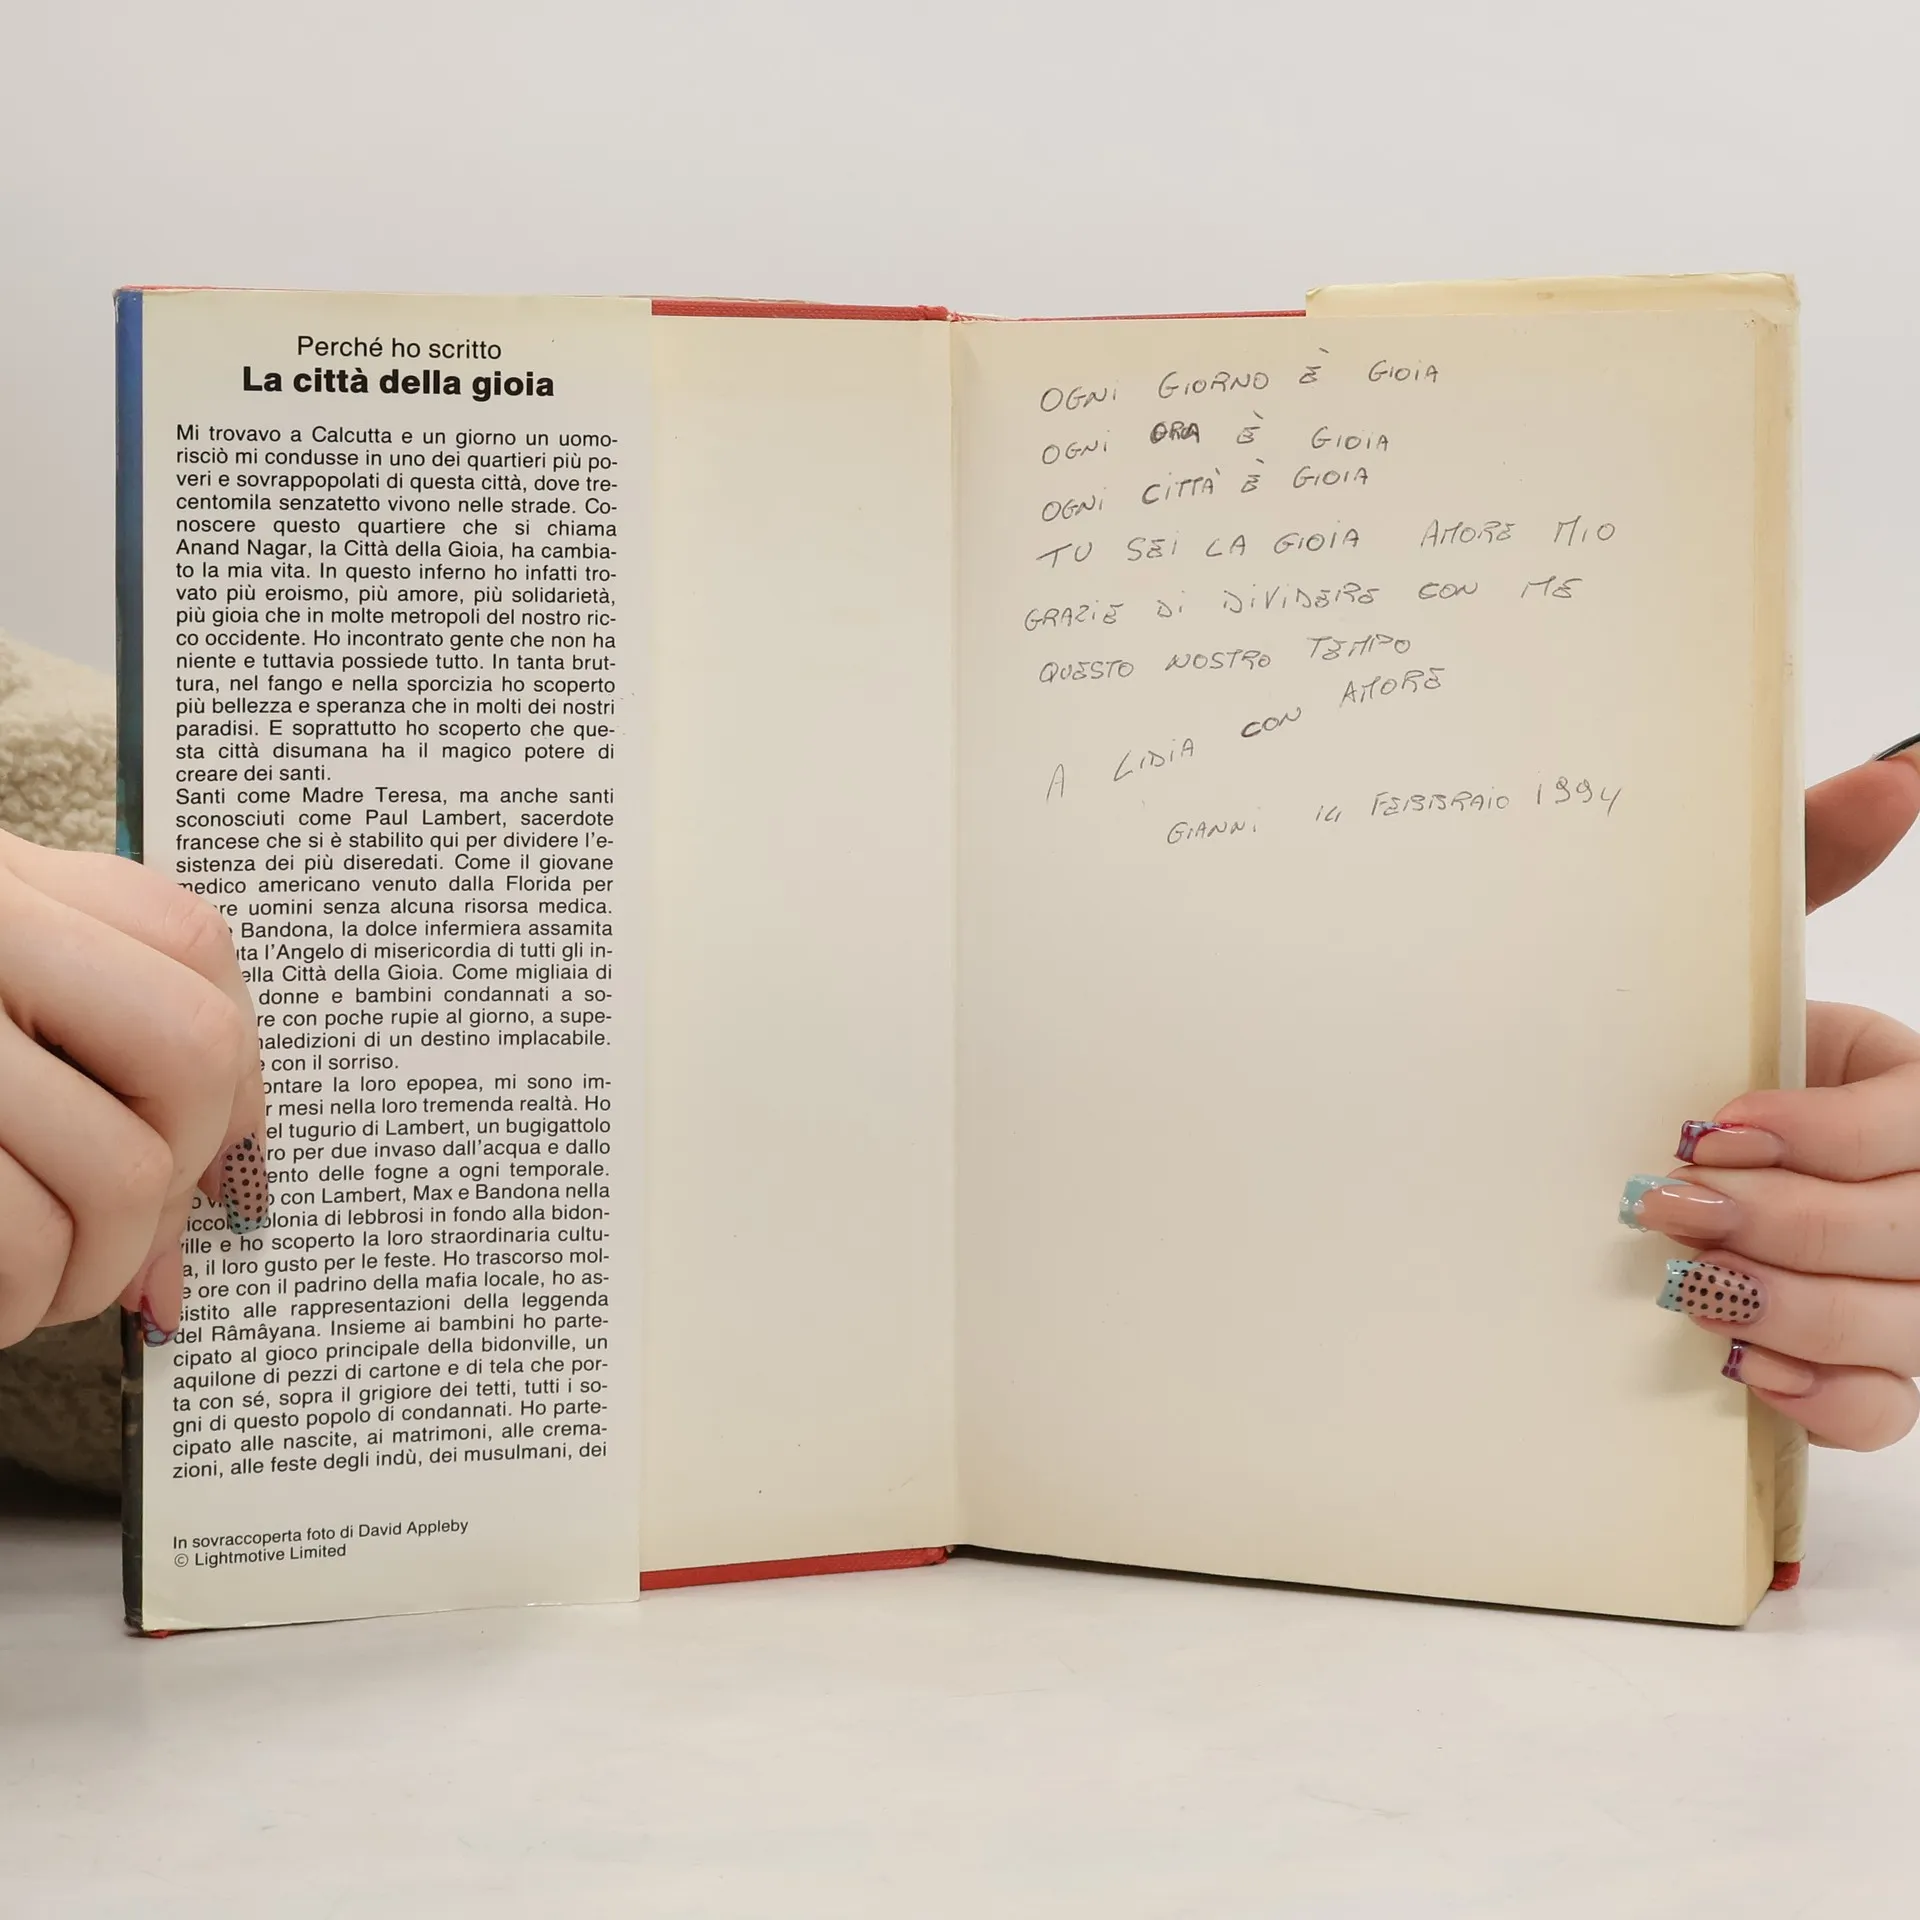 Perché ho scritto
La città della gioia
Mi trovavo a Calcutta e un giorno un uomo-
risciò mi condusse in uno dei quartieri più po-
veri e sovrappopolati di questa città, dove tre-
centomila senzatetto vivono nelle strade. Co-
noscere questo quartiere che si chiama
Anand Nagar, la Città della Gioia, ha cambia-
to la mia vita. In questo inferno ho infatti tro-
vato più eroismo, più amore, più solidarietà,
più gioia che in molte metropoli del nostro ric-
co occidente. Ho incontrato gente che non ha
niente e tuttavia possiede tutto. In tanta brut-
tura, nel fango e nella sporcizia ho scoperto
più bellezza e speranza che in molti dei nostri
paradisi. E soprattutto ho scoperto che que-
sta città disumana ha il magico potere di
creare dei santi.
Santi come Madre Teresa, ma anche santi
sconosciuti come Paul Lambert, sacerdote
francese che si è stabilito qui per dividere l'e-
sistenza dei più diseredati. Come il giovane
medico americano venuto dalla Florida per
re uomini senza alcuna risorsa medica.
Bandona, la dolce infermiera assamita
uta l'Angelo di misericordia di tutti gli in-
ella Città della Gioia. Come migliaia di
donne e bambini condannati a so-
re con poche rupie al giorno, a supe-
maledizioni di un destino implacabile.
e con il sorriso.
ontare la loro epopea, mi sono im-
r mesi nella loro tremenda realtà. Ho
el tugurio di Lambert, un bugigattolo
ro per due invaso dall'acqua e dallo
ento delle fogne a ogni temporale.
con Lambert, Max e Bandona nella
iccol olonia di lebbrosi in fondo alla bidon-
ville e ho scoperto la loro straordinaria cultu-
a, il loro gusto per le feste. Ho trascorso mol-
e ore con il padrino della mafia locale, ho as-
sistito alle rappresentazioni della leggenda
del Râmâyana. Insieme ai bambini ho parte-
cipato al gioco principale della bidonville, un
aquilone di pezzi di cartone e di tela che por-
ta con sé, sopra il grigiore dei tetti, tutti i so-
gni di questo popolo di condannati. Ho parte-
cipato alle nascite, ai matrimoni, alle crema-
zioni, alle feste degli indù, dei musulmani, dei
In sovraccoperta foto di David Appleby
© Lightmotive Limited
OGNI GIORNO È GIOIA
OGNI ORA È GIOIA
OGNI CITTÀ È GIOIA
TU SEI LA GIOIA AMORE MIO
GRAZIE DI DIVIDERE CON ME
QUESTO NOSTRO TEMPO
A LIDIA CON AMORE
GIANNI 14 FEBBRAIO 1994